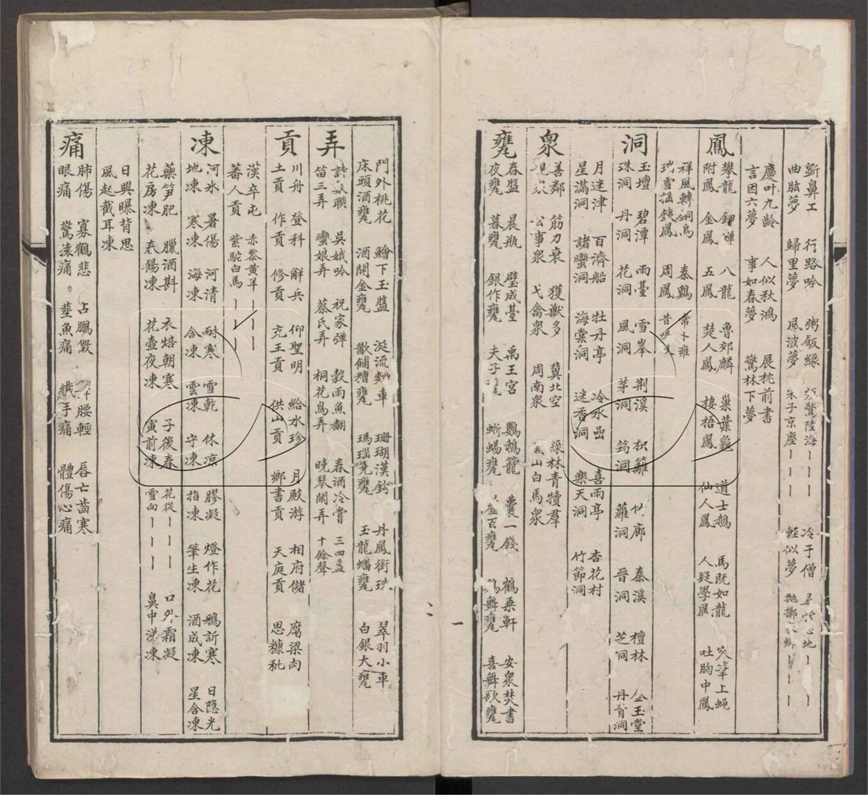 斲鼻工　行路吟　粥飯緣　驚陸海｜｜｜　冷于僧　地｜
曲肱夢　歸里夢　風波夢　朱子京塵｜｜｜　輕似夢　｜｜
塵叶九齡　人似秋鴻　展桃前書
言因六夢　事如春夢　驚林下夢
鳳
攀龍　鯉　八龍　魯郊麟　巢葉龜　道士鵝　馬既如龍　筆上蠅
附鳳　金鳳　五鳳　楚人鳳　棲梧鳳　仙人鳳　人疑學鳳　吐胸中鳳
祥風轉銅烏　秦鷄　常
瑞雪　鳳　周鳳　昔
洞
玉壇　碧潭　雨臺　雪峯　荆溪　枳籬　廊　秦溪　檀林　金玉堂
珠洞　丹洞　花洞　風洞　茅洞　筠洞　蘿洞　晋洞　芝洞　丹青洞
月迷津　百濟船　牡丹亭　冷水嵒　喜雨亭　杏花村
星滿洞　諸蠻洞　海棠洞　迷香洞　樂天洞　竹節洞
衆
善鄰　筋力衰　獲獸多　冀北空　綠林青犢羣
公事衆　弋禽衆　周南衆　山白馬衆
甕
春盤　晨瓶　壁成臺　禹王宮　鸚鵡籠　囊一錢　鶴乘軒　安衆焚書
夜甕　暮甕　銀作甕　夫子甕　蜥蜴甕　百甕　舞甕　喜舞歌甕
門外桃花　鱠下玉盤　涎流麴車　珊瑚漢鉤　丹鳳銜珠　翠羽小車
床頭酒甕　酒開金甕　歠餔糟甕　瑪瑙甕　玉龍蟠甕　白銀大甕
弄
詩聯　吳娥吟　祝家彈　穀雨魚翻　春酒冷嘗　三四盃
笛三弄　蠻娘弄　蔡氏弄　桐花鳥弄　曉琴閑弄　十餘聲
貢
川舟　登科　解兵　仰聖明　給水珍　月殿游　相府儲　腐梁肉
土貢　作貢　修貢　充王貢　供山貢　鄉書貢　天庭貢　思糠秕
漢卒屯　赤黎黄羊｜｜｜
蕃人貢　紫駝白馬｜｜｜
凍
河水　暑傷　河清　耐寒　雪乾　休凉　膠凝　燈作花　鵝訢寒　日隱光
地凍　寒凍　海凍　含凍　雲凍　守凍　指凍　筆生凍　酒成凍　星含凍
藥笋肥　臘酒斟　衣焙朝寒　子後春　花從｜｜｜　口外霜凝
花房凍　春鶴凍　花壺夜凍　寅前凍　雪向｜｜｜　鼻中涕凍
日與曝背思
風起截耳凍
痛
肺傷　寡鶴悲　占鵬歎　腰輕　唇亡齒寒
眼痛　驚痛　葬魚痛　手痛　體傷心痛